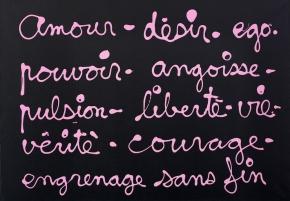 Amour - désir. ego.
pouvoir - angoisse -
pulsion - liberté - vie -
vérité - courage -
engrenage sans fin